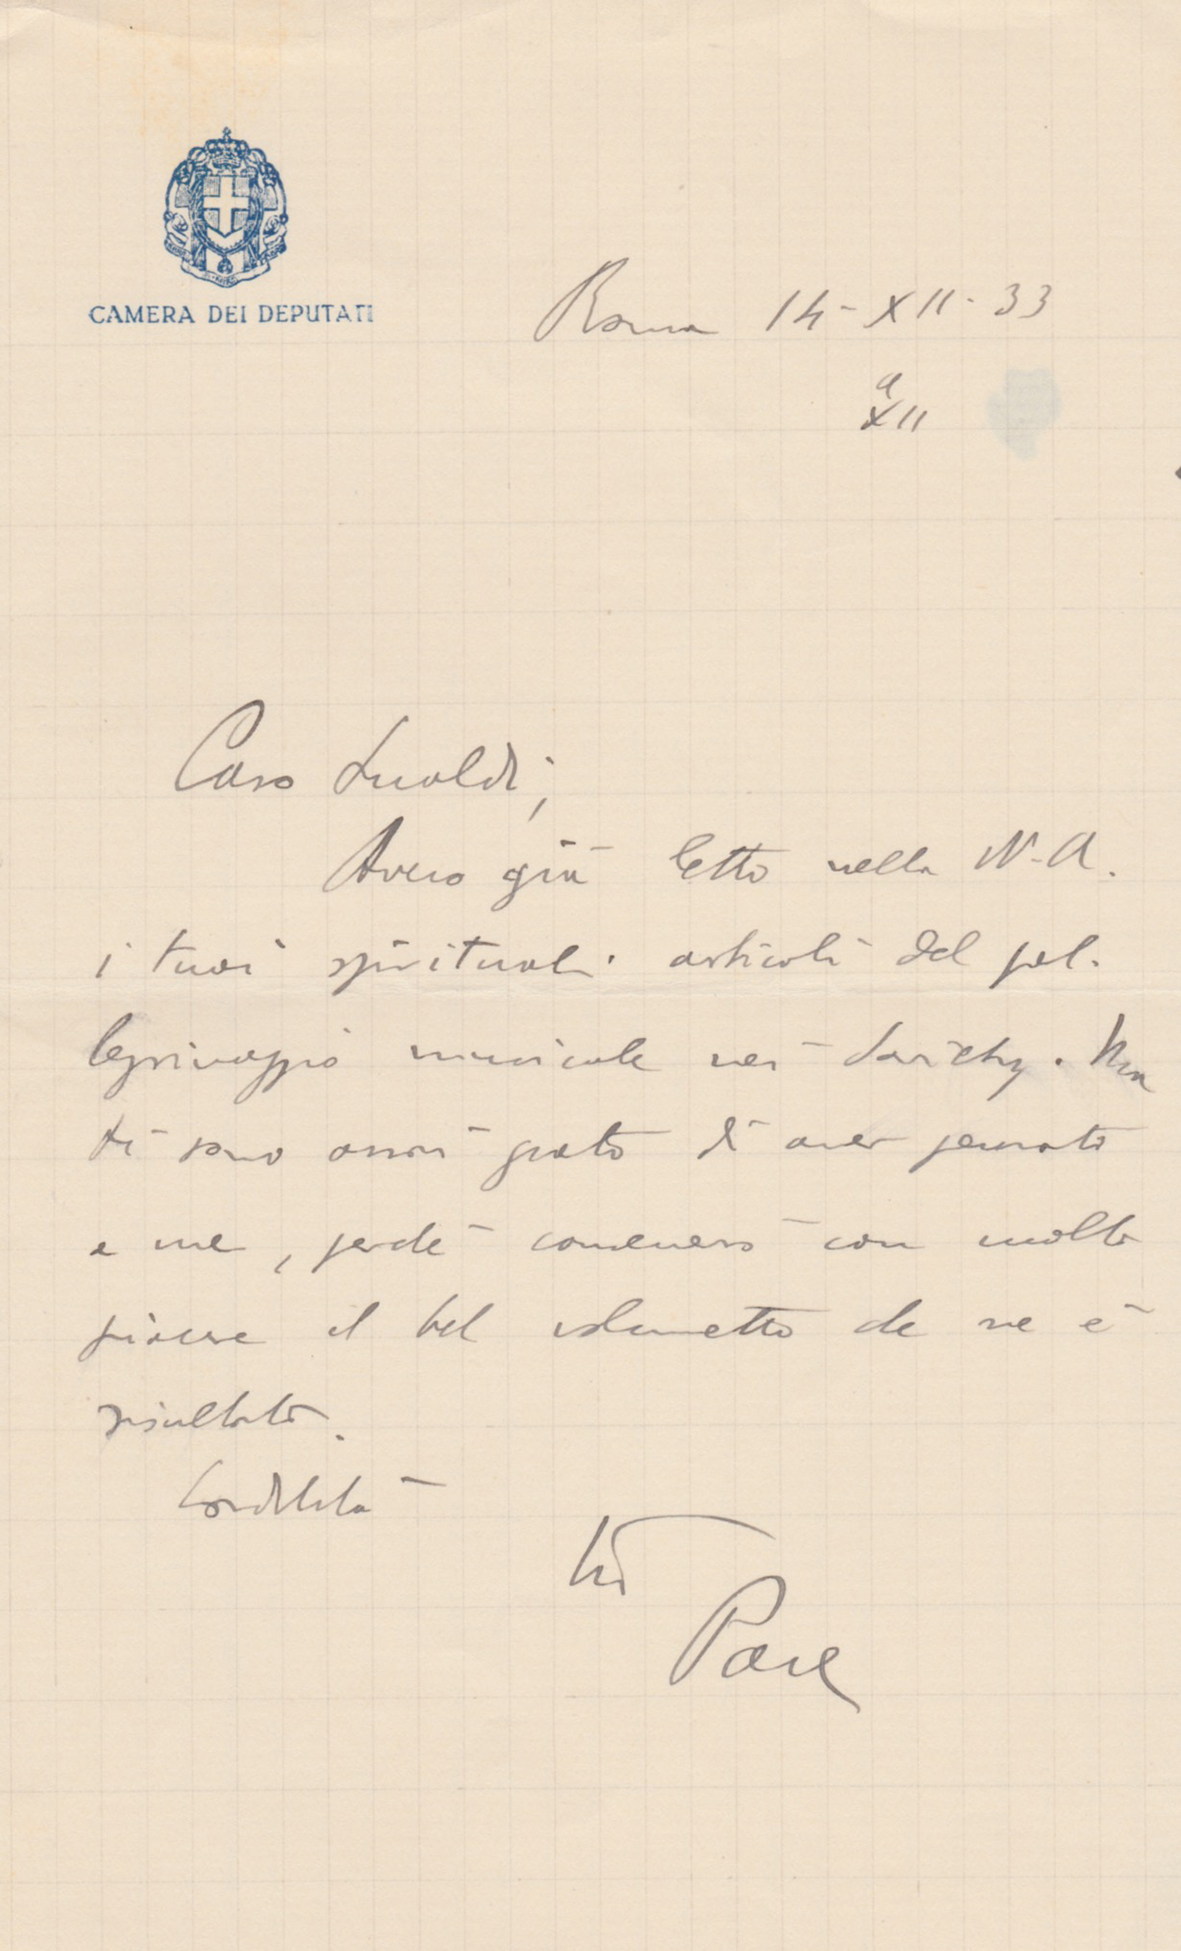 CAMERA DEI DEPUTATI
Roma 14-XII-33
a
XII
Caro Lualdi,
Avevo già letto nella N. A.
i tuoi spirituali articoli del pel-
legrinaggio musicale nei Sovichy. Ma
ti sono assai grato di aver pensato
a me, perché conserverò con molto
piacere il bel volumetto che ne è
risultato.
Cordialità
tuo
Pace